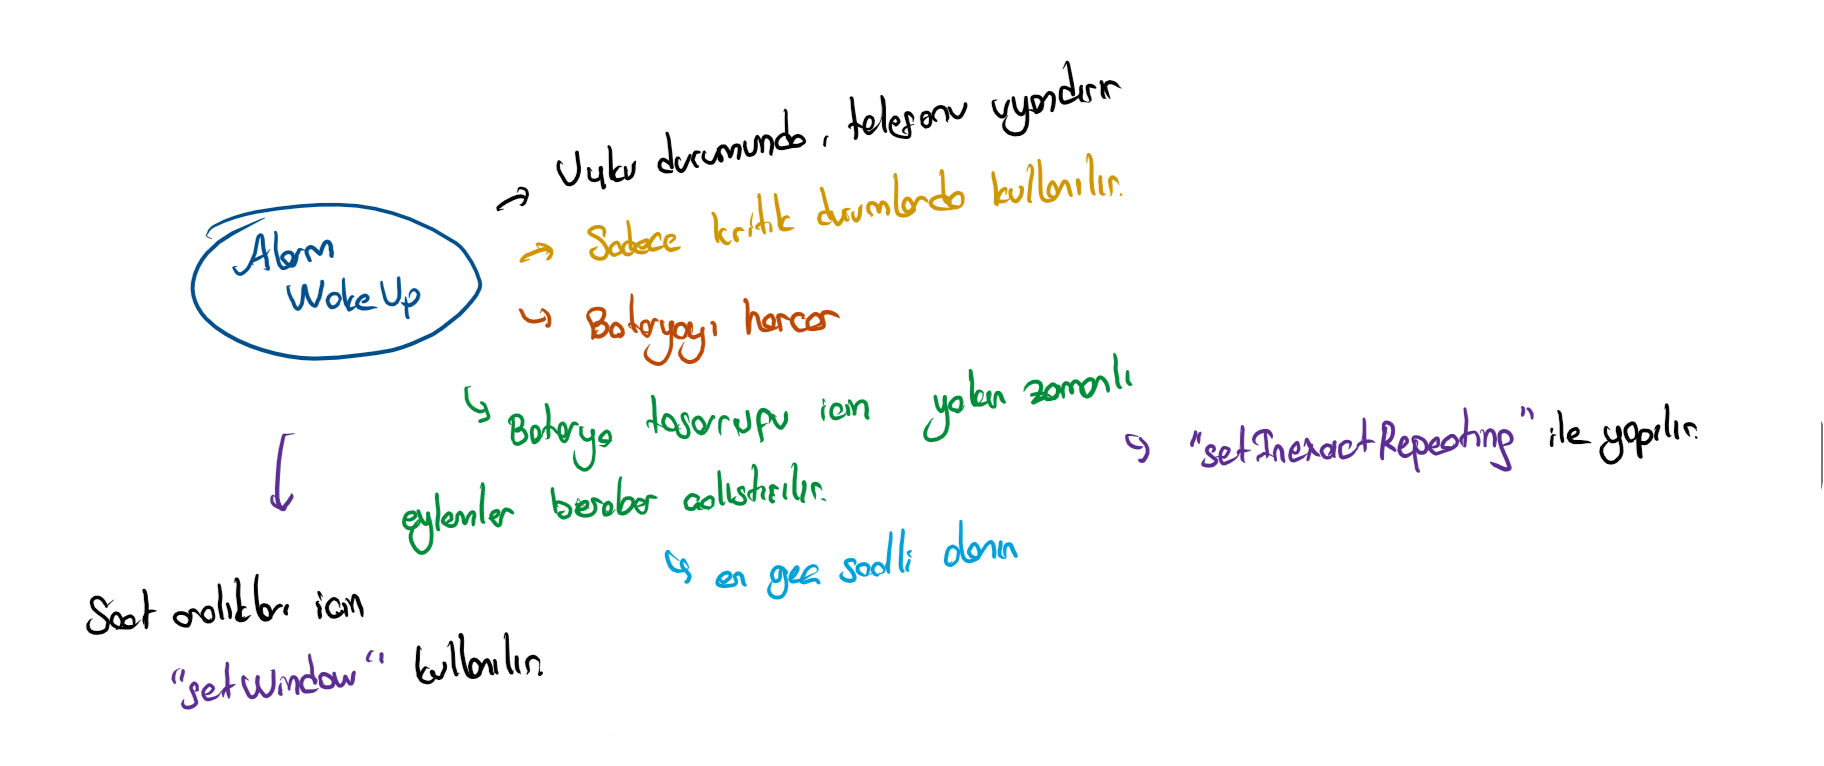 Alarm
Wake Up
→ Uyku durumunda, telefonu uyandırır
→ Sadece kritik durumlarda kullanılır.
↪ Bataryayı harcar
↪ Batarya tasarrufu için yakın zamanlı
eylemler beraber çalıştırılır.
↪ "setInexactRepeating" ile yapılır.
↪ en geç saatli alarm
Saat aralıkları için
"setWindow" kullanılır.